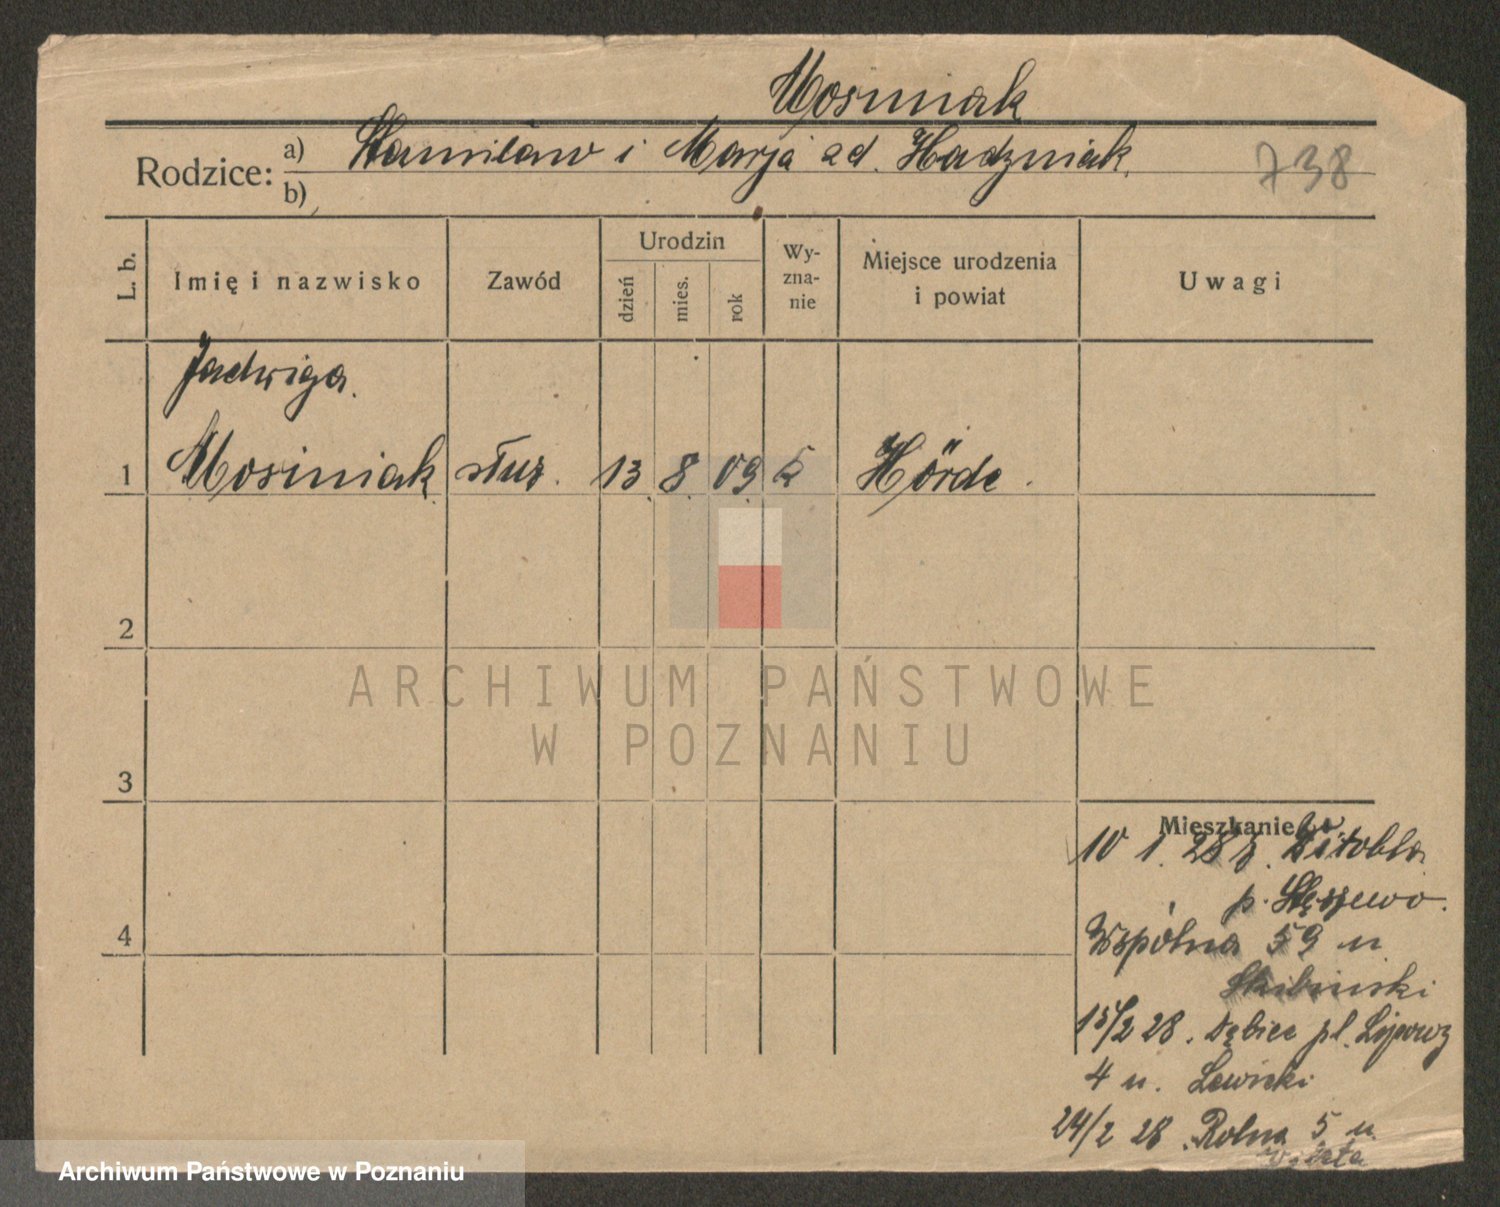 Mosiniak
Rodzice: a) Stanisław i Marja ad. Hadzniak.
b)
738
L. b.
Imię i nazwisko
Zawód
Urodzin
dzień
mies.
rok
Wy-
zna-
nie
Miejsce urodzenia
i powiat
Uwagi
Jadwiga.
1 Mosiniak służ. 13 8 09 k Hörde.
2
3
4
Mieszkanie
10 1. 28 z. Witobla
p. Stęszewo.
Wspólna 59 u
Skibinski
15/2 28. Dębiec pl. Lipowy
4 u. Lewicki
24/2 28. Rolna 5 u
ARCHIWUM PAŃSTWOWE
W POZNANIU
Archiwum Państwowe w Poznaniu